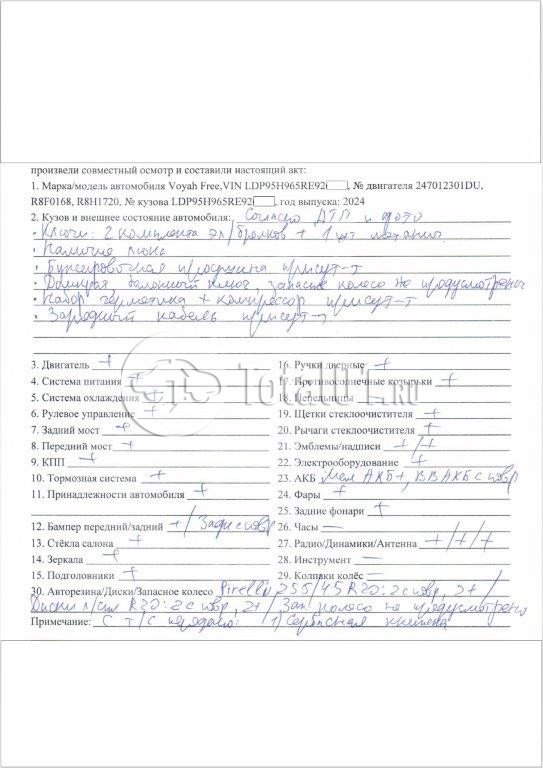 произвели совместный осмотр и составили настоящий акт:
1. Марка/модель автомобиля Voyah Free,VIN LDP95H965RE92, № двигателя 247012301DU,
R8F0168, R8H1720, № кузова LDP95H965RE92, год выпуска: 2024
2. Кузов и внешнее состояние автомобиля: Согласно ДТП и фото
• Ключи: 2 комплекта эл/брелков + 1 шт механич.
• Наличие люка
• Буксировочная проушина присут-т
• Домкрат, балонный ключ, запасное колесо не предусмотрены
• Набор герметика + компрессор присут-т
• Зарядный кабель присут-т
3. Двигатель +
16. Ручки дверные +
4. Система питания +
17. Противосолнечные козырьки +
5. Система охлаждения +
18. Пепельницы —
6. Рулевое управление +
19. Щетки стеклоочистителя +
7. Задний мост +
20. Рычаги стеклоочистителя +
8. Передний мост +
21. Эмблемы/надписи +/+
9. КПП +
22. Электрооборудование +
10. Тормозная система +
23. АКБ АКБ+, ВВ АКБ с повр
11. Принадлежности автомобиля +
24. Фары +
25. Задние фонари +
12. Бампер передний/задний +/Задн с повр
26. Часы —
13. Стёкла салона +
27. Радио/Динамики/Антенна +/+/+
14. Зеркала +
28. Инструмент —
15. Подголовники +
29. Колпаки колёс —
30. Авторезина/Диски/Запасное колесо Pirelli 255/45 R20: 2 с повр, 2+/
Диски R20: 2 с повр, 2+/ Зап. колесо не предусмотрено
Примечание: С Т/С передано: 1) Сервисная книжка
Total01.ru